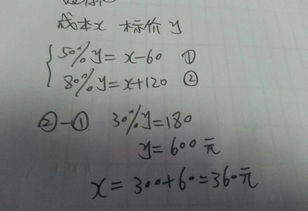 成本x 标价y
50%y=x-60 ①
80%y=x+120 ②
②-① 30%y=180
y=600元
x=300+60=360元